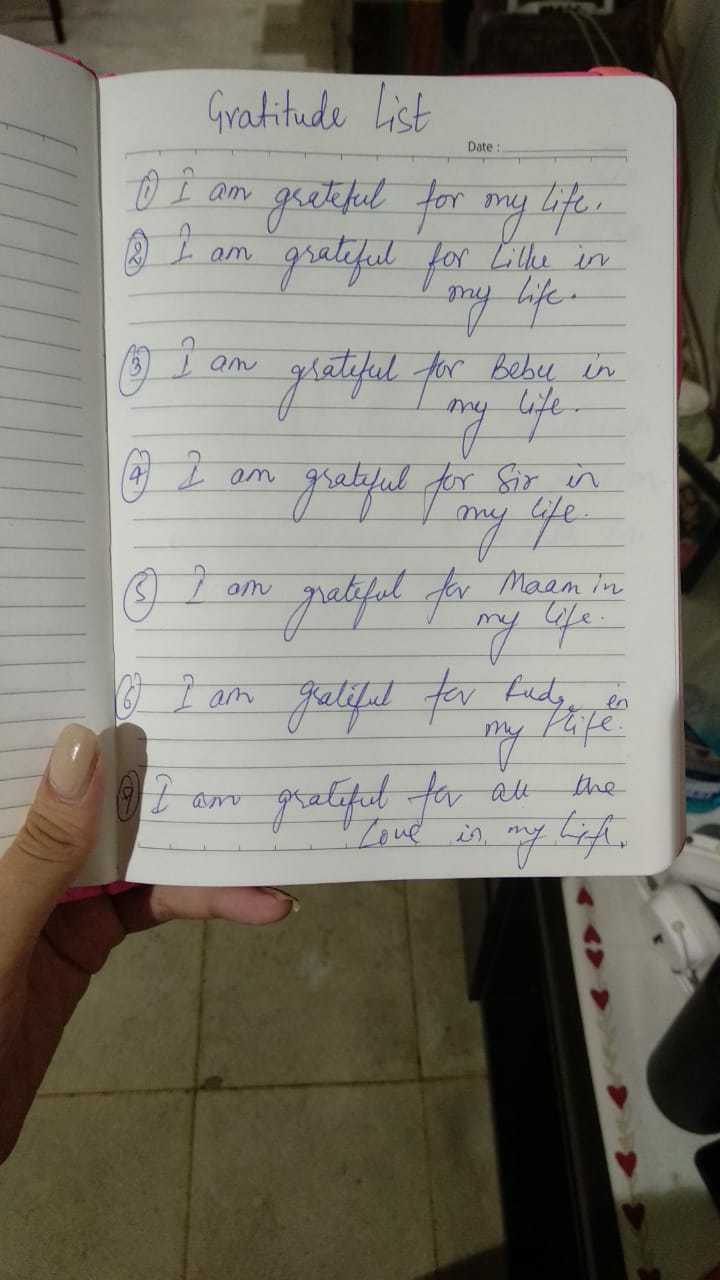 Gratitude List
Date :
① I am grateful for my life.
② I am grateful for Lille in
my life.
③ I am grateful for Bebu in
my life.
④ I am grateful for Sir in
my life.
⑤ I am grateful for Maam in
my life.
⑥ I am grateful for in
my life.
⑦ I am grateful for all the
Love in my life.